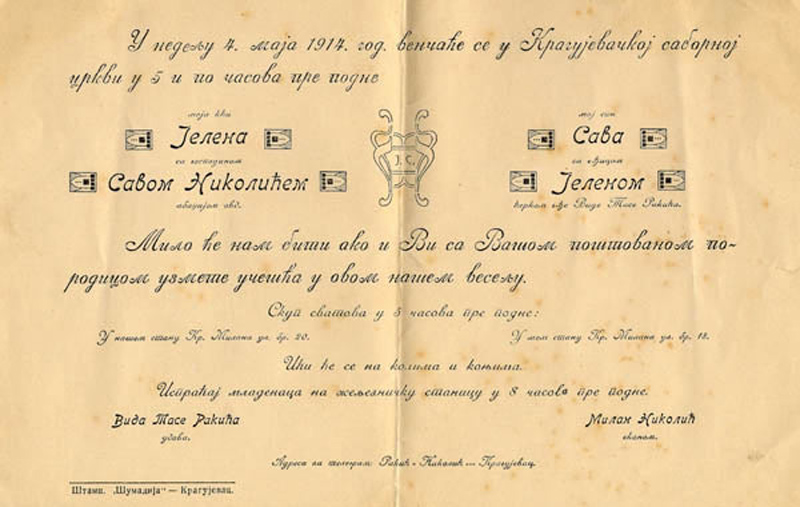 У недељу 4. маја 1914. год. венчаће се у Крагујевачкој саборној
цркви у 5 и по часова пре подне
моја кћи
Јелена
са господином
Савом Николићем
абаџијом овд.
Ј. С.
мој син
Сава
са г‑ђицом
Јеленом
ћерком г‑ђе Виде Тасе Ракића.
Мило ће нам бити ако и Ви са Вашом поштованом по-
родицом узмете учешћа у овом нашем весељу.
Скуп сватова у 5 часова пре подне:
У нашем стану Кр. Милана ул. бр. 20.
У мом стану Кр. Милана ул. бр. 18.
Ићи ће се на колима и коњима.
Испраћај младенаца на жељезничку станицу у 8 часова пре подне.
Вида Тасе Ракића
удова.
Милан Николић
економ.
Адреса за телеграм Ракић - Николић — Крагујевац.
Штамп. „Шумадија“ — Крагујевац.